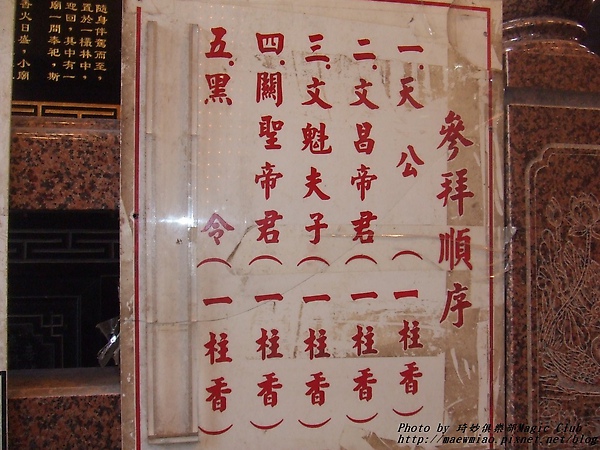 參拜順序
一.天公(一柱香)
二.文昌帝君(一柱香)
三.文魁夫子(一柱香)
四.關聖帝君(一柱香)
五.黑 令(一柱香)
隨身伴駕而至,
置於一樣林中,
迎回,其中有一
廟一間奉祀,斯
香火日盛,小廟
Photo by 琦妙俱樂部Magic Club
http://maewmiao.pixnet.net/blog